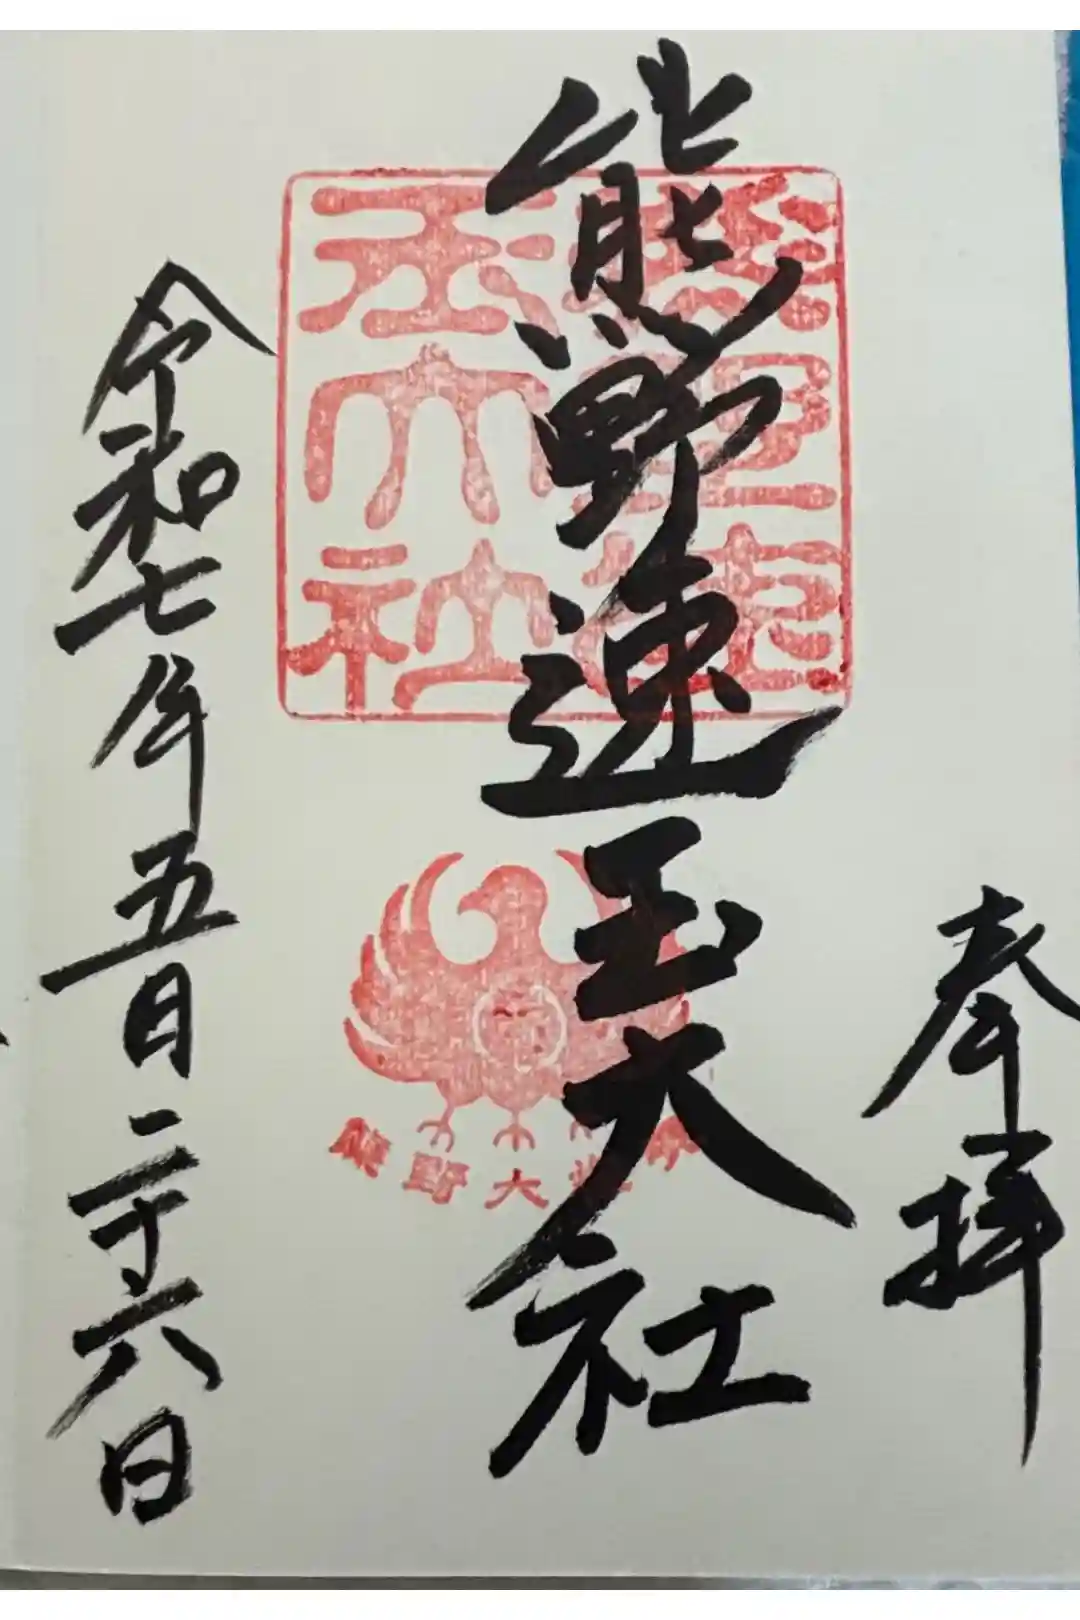 奉拝
熊野速玉大社
令和七年五月二十六日
熊野速
玉大社